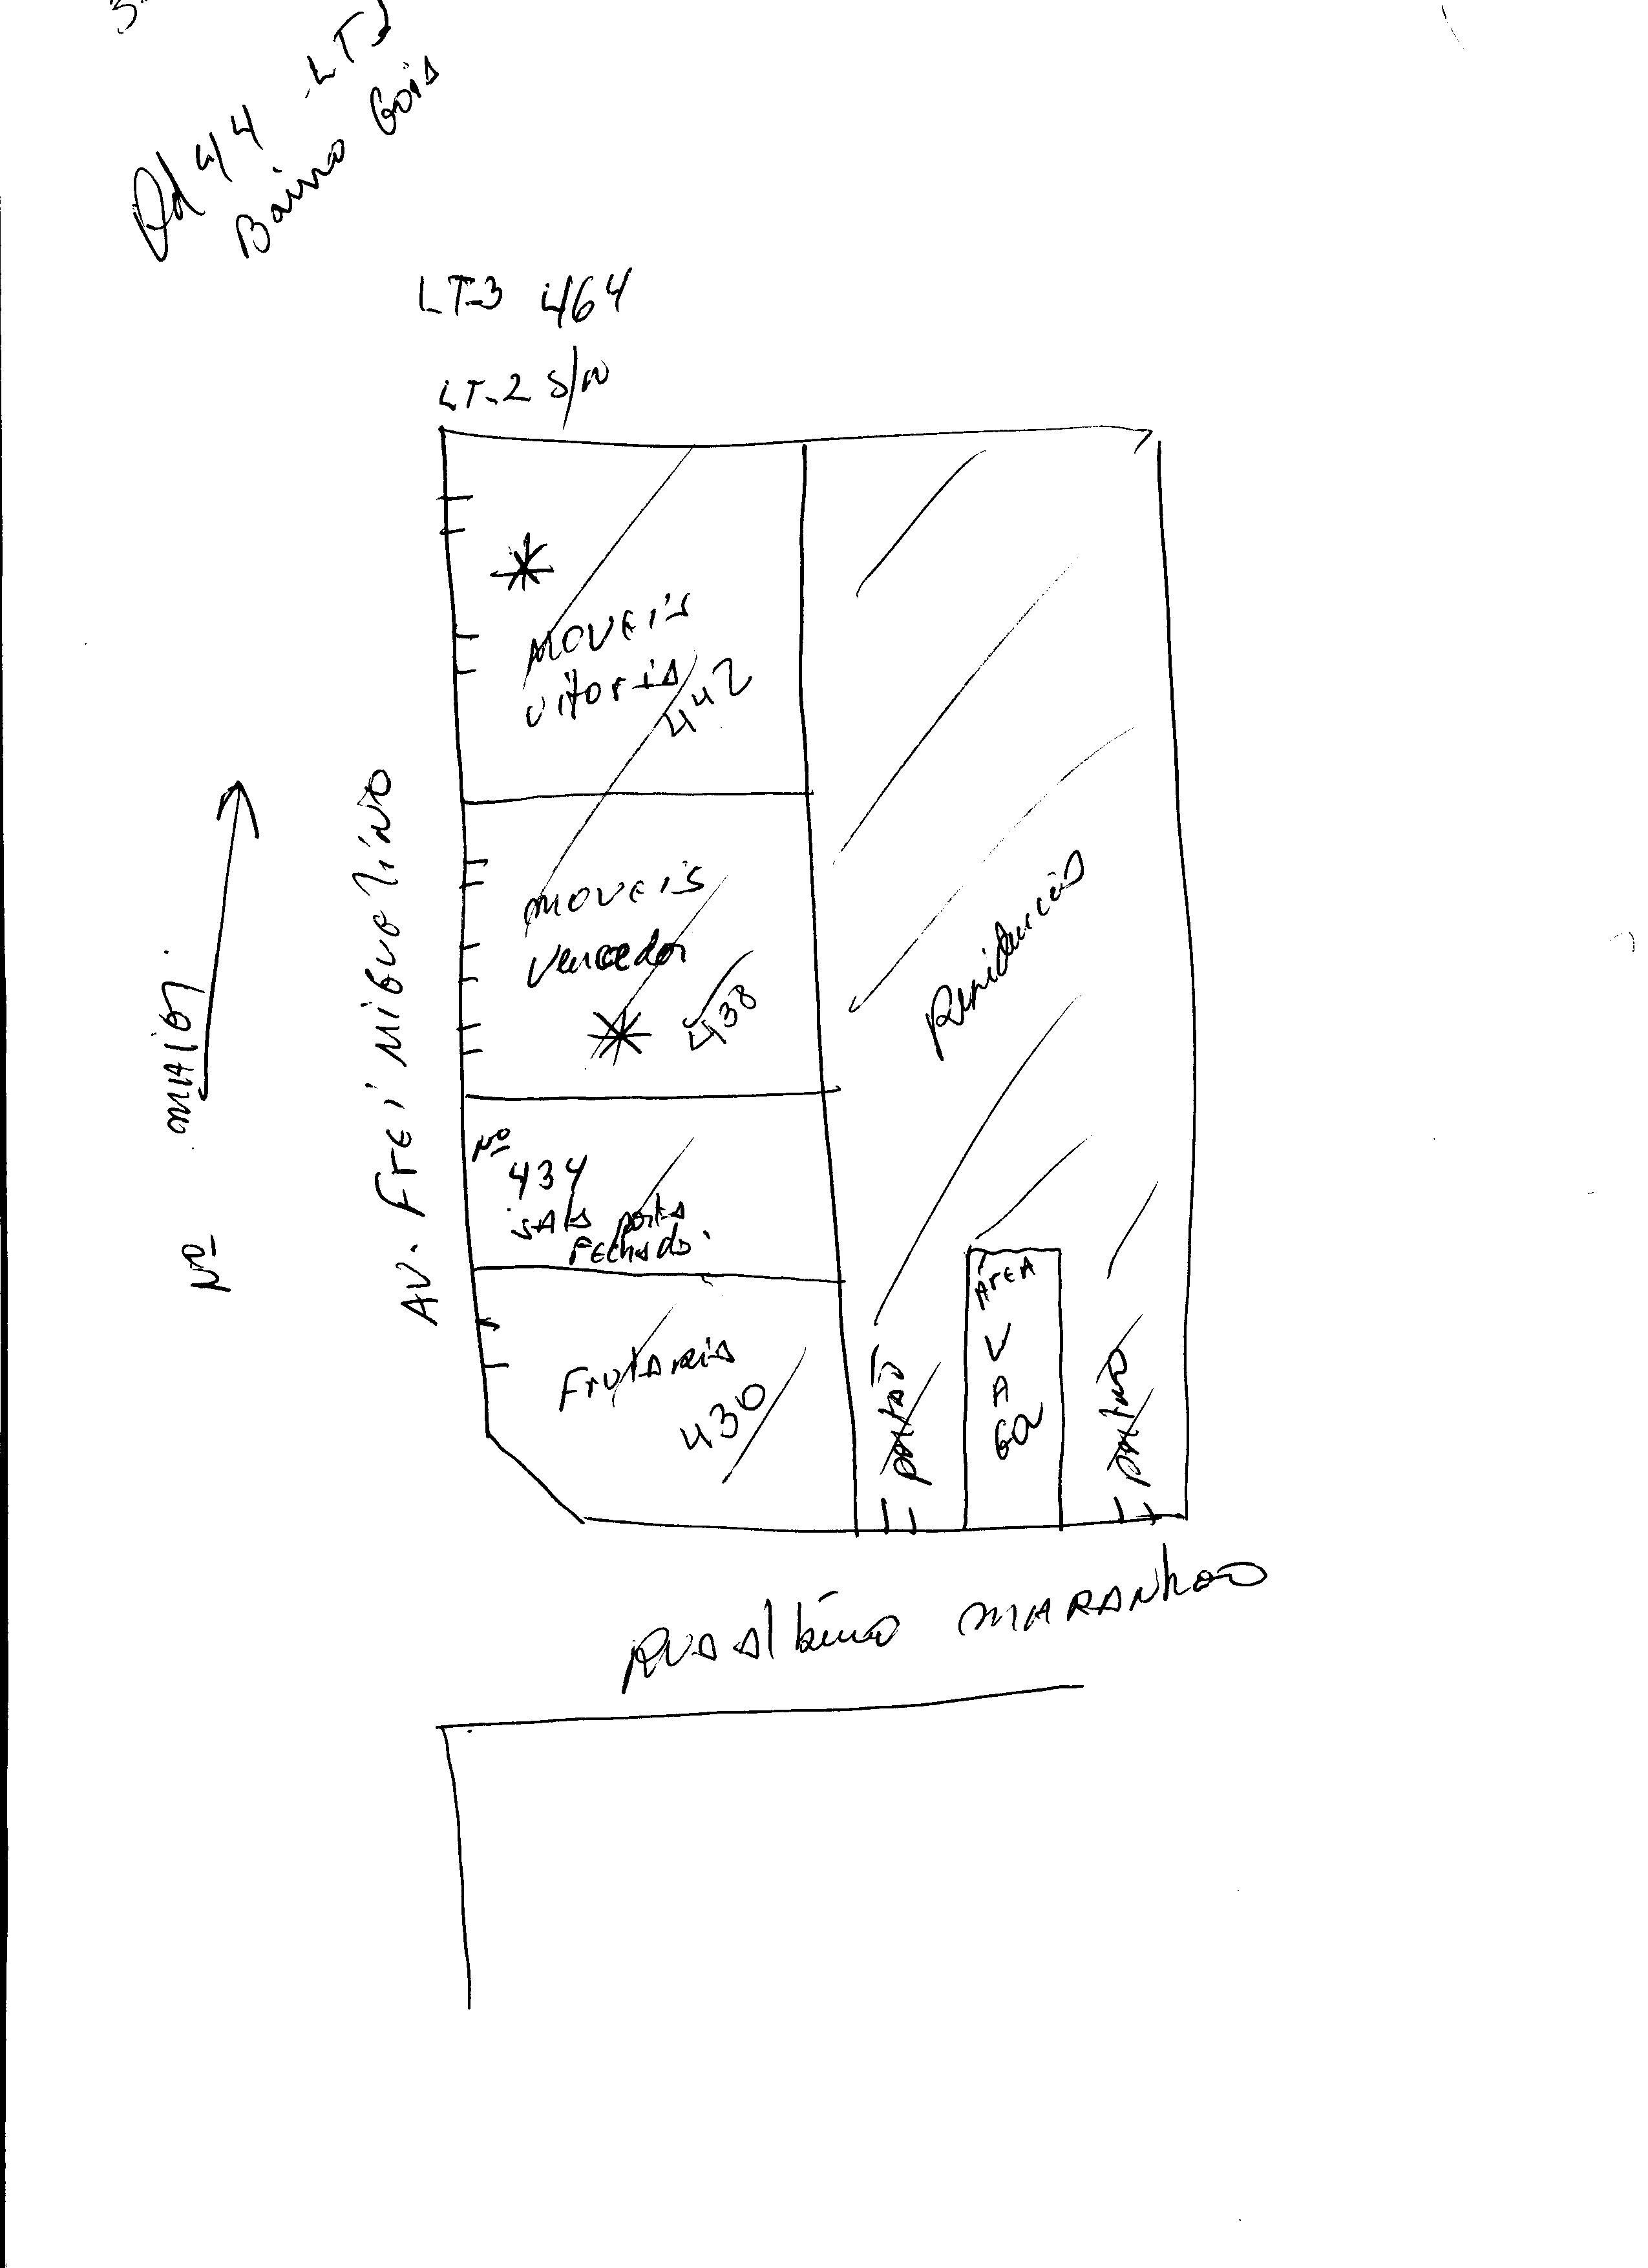 Qd 44 - LT1
Bairro Goiá
LT-3 464
LT-2 S/N
MOVEIS
VitoriA
442
MOVEIS
Vencedor
438
Nº
434
SALA porta
FEchada.
FrutAria
430
Residencia
ÁrEA
V
A
GA
portão
portão
AV. FrEi MiGUELiNO
Nº MAIOR
RUA Albino MARANhAO